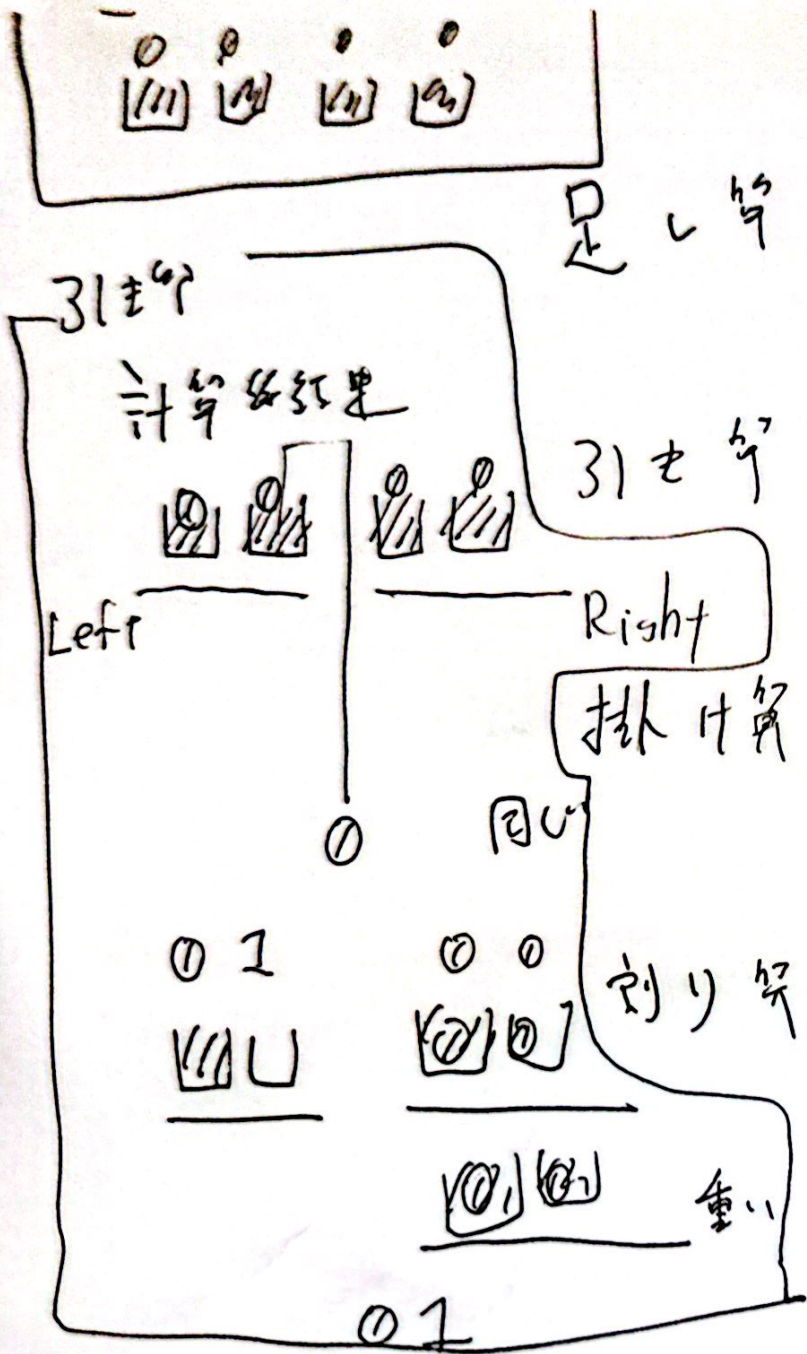 足し算
引き算
計算後結果
引き算
Left
Right
掛け算
0
同じ
0 1
0 0
割り算
重い
0 1